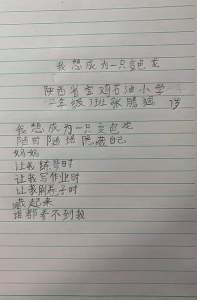 我想成为一只变色龙
陕西省宝鸡石油小学
二年级3班张腾 7岁
我想成为一只变色龙
随时随地隐藏自己
妈妈
让我练 时
让我写作业时
让我刷 子时
藏起来
谁都看不到我